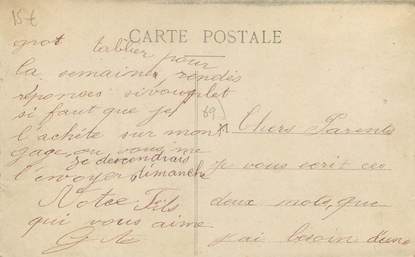 15€
CARTE POSTALE
69
Chers Parents
je vous ecrit ces
deux mots, que
j'ai besoin d'un
gros tablier pour
la semaine rendes
réponses sivouplet
si faut que je
l'achète sur mon
gage, ou vous me
l'envoyer, je descendrais dimanche
Notre Fils
qui vous aime